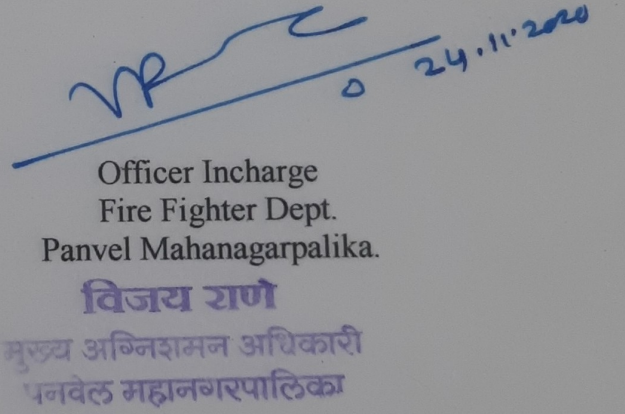 24.11.2020
Officer Incharge
Fire Fighter Dept.
Panvel Mahanagarpalika.
विजय राणे
मुख्य अग्निशमन अधिकारी
पनवेल महानगरपालिका